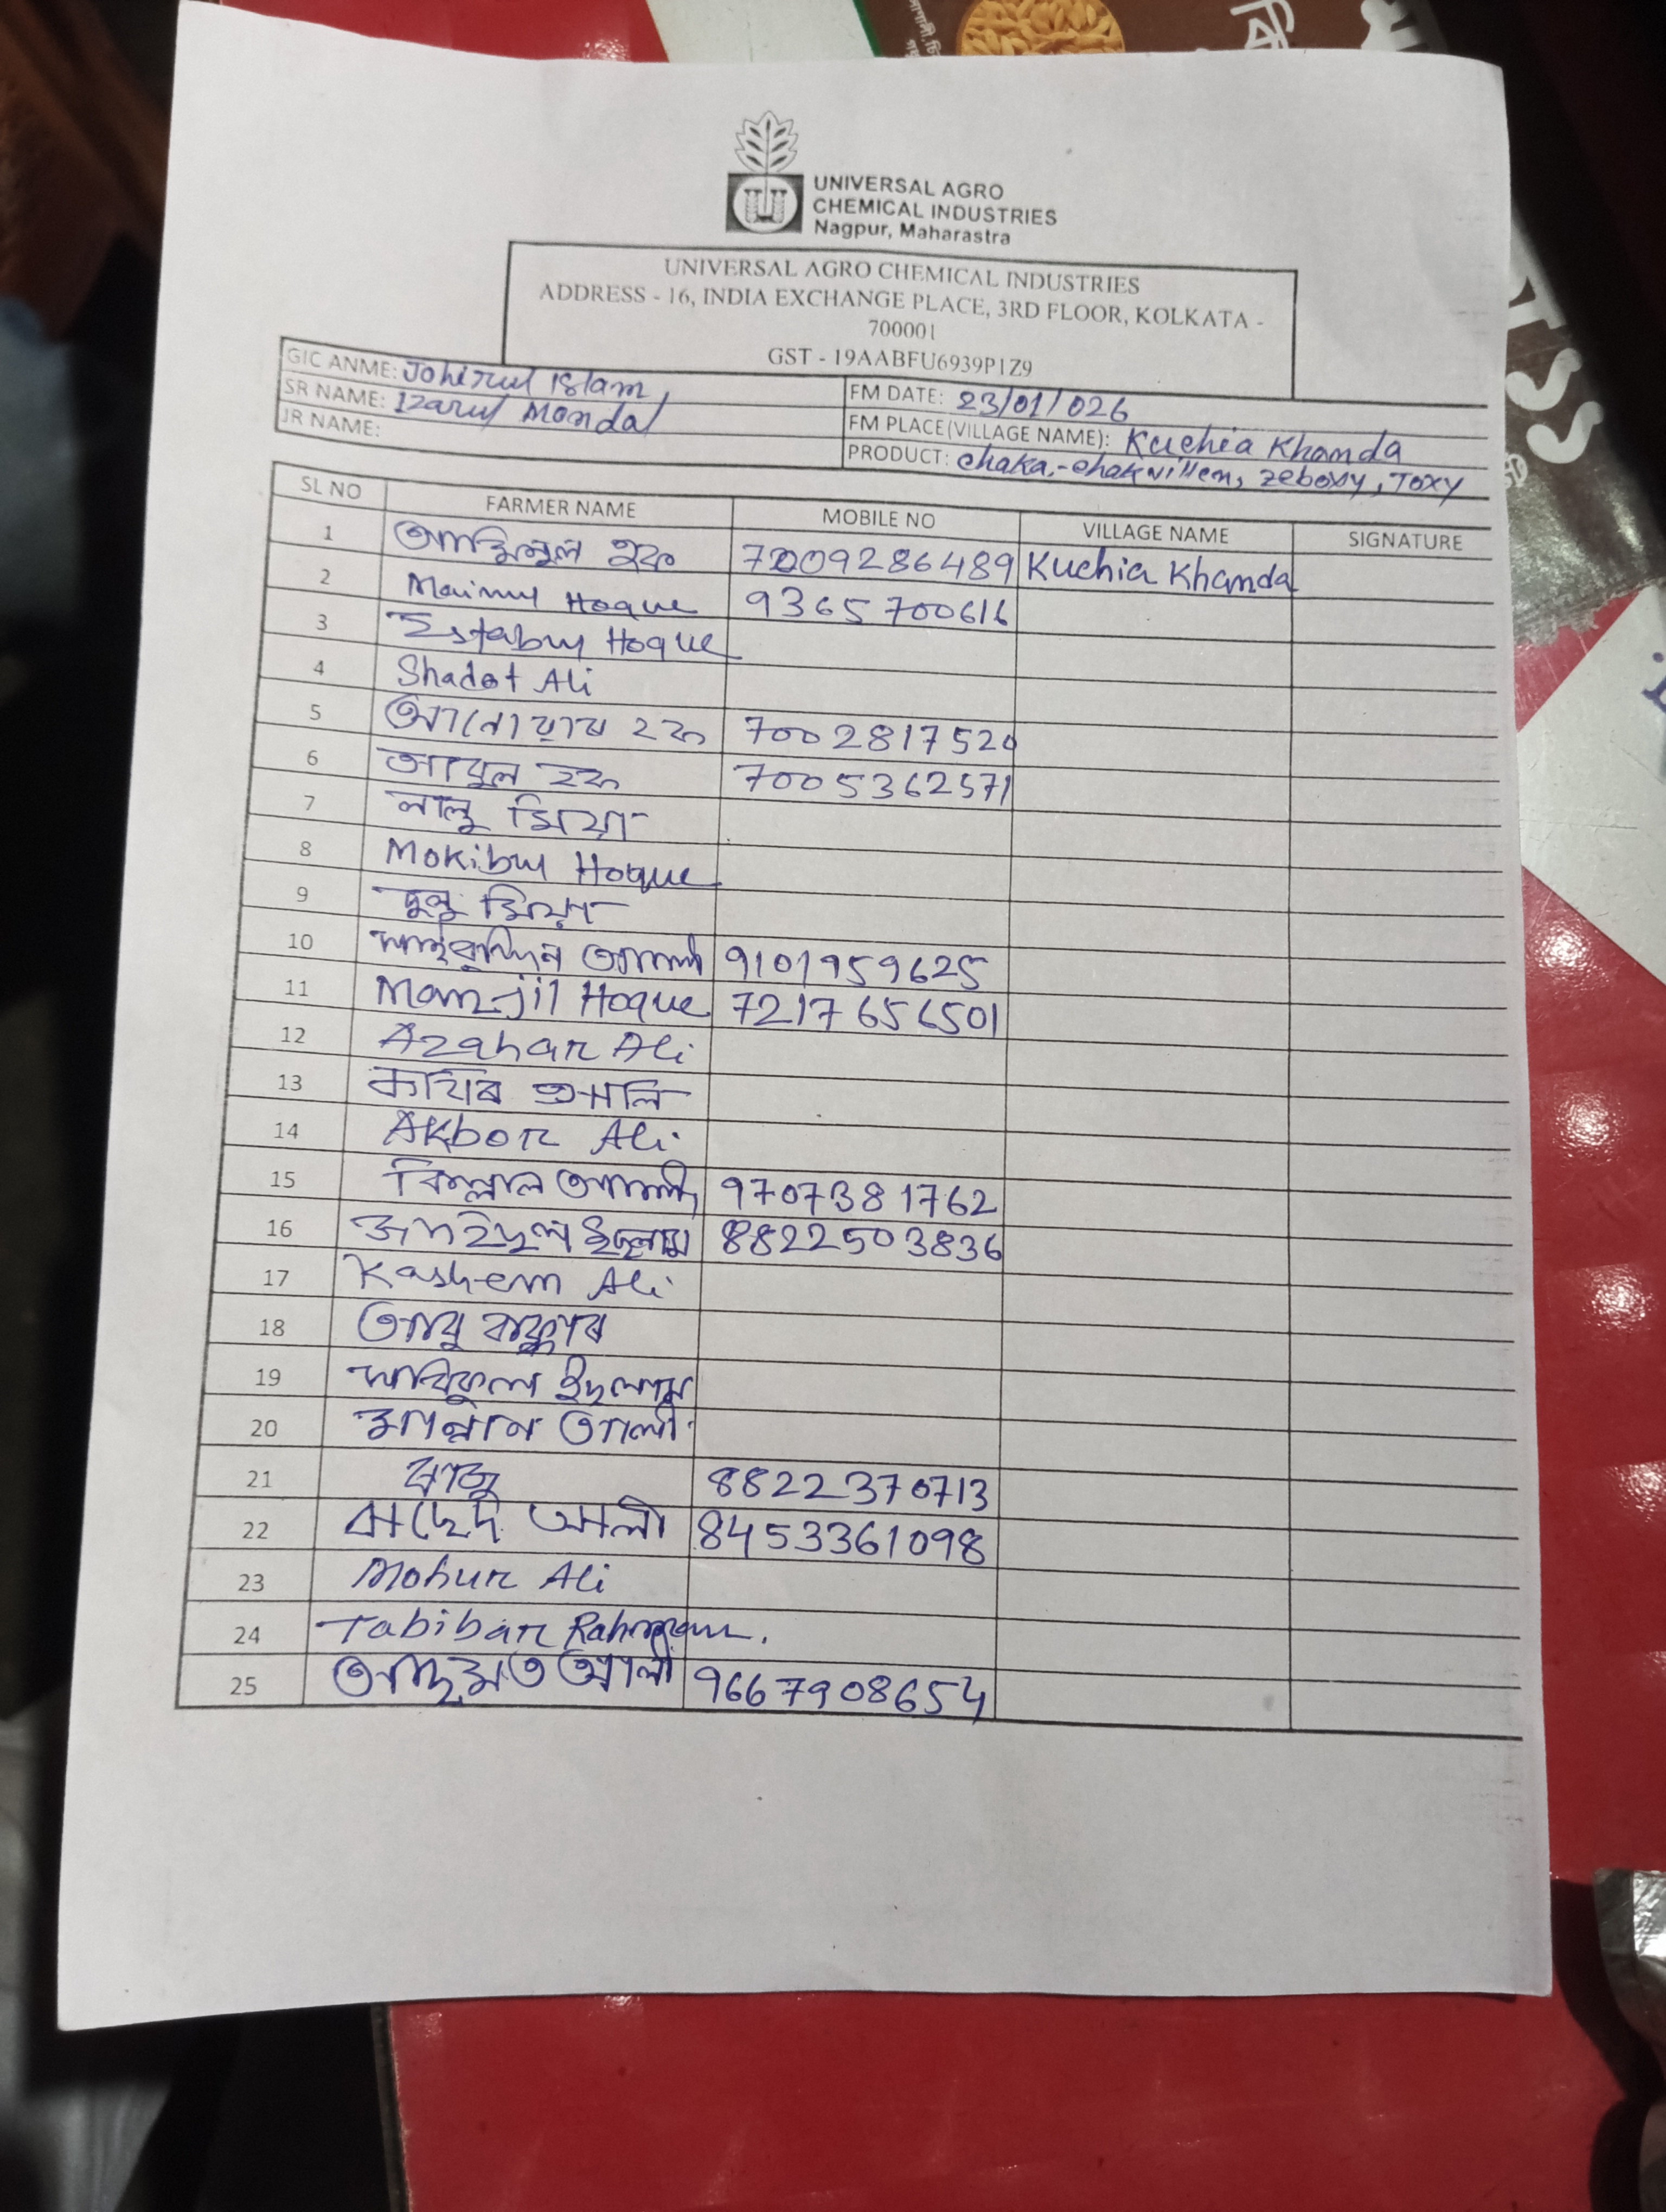 UNIVERSAL AGRO
CHEMICAL INDUSTRIES
Nagpur, Maharastra
UNIVERSAL AGRO CHEMICAL INDUSTRIES
ADDRESS - 16, INDIA EXCHANGE PLACE, 3RD FLOOR, KOLKATA -
700001
GST - 19AABFU6939P1Z9
GIC ANME: Johirul Islam
SR NAME: Izarul Mondal
JR NAME:
FM DATE: 23/01/026
FM PLACE(VILLAGE NAME): Kuchia Khanda
PRODUCT: chaka,-chak, zeboxy, Toxy
SL NO FARMER NAME MOBILE NO VILLAGE NAME SIGNATURE
1 হক 9286489 Kuchia Khanda
2 Mainul Hoque 9365700616
3 Estabul Hoque
4 Shadot Ali
5 আনোয়াৰ হক 7002817520
6 আবুল হক 7005362571
7 লালু মিয়া
8 Mokibul Hoque
9 দুলু মিয়া
10 9101959625
11 Monzjil Hoque 7217656501
12 Azahar Ali
13 কবিৰ আলি
14 Akbor Ali
15 বিল্লাল আলী 9707381762
16 জাহিদুল ইছলাম 8822503836
17 Kashem Ali
18 আবু বাক্কাৰ
19 ইছলাম
20 মান্নান আলী
21 ৰাজু 8822370713
22 বাছেদ আলী 8453361098
23 Mohur Ali
24 Tabibar Rahman.
25 আছমত আলী 9667908654